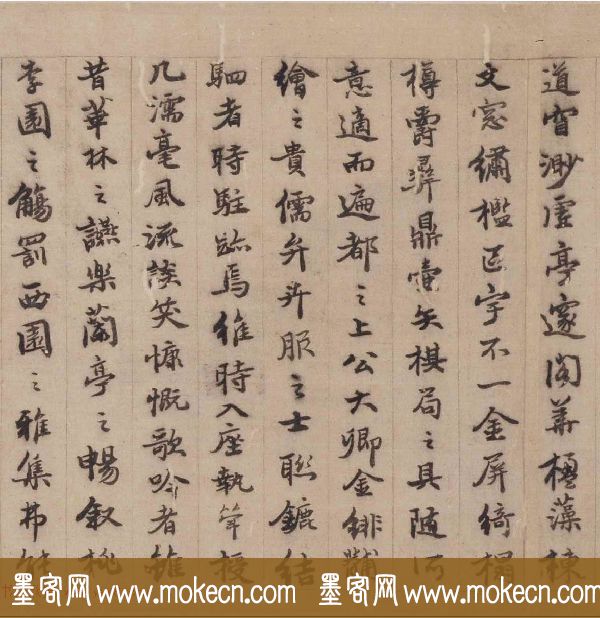 道窅渺虛亭邃閣華榱藻棟
文窓繡檻区宇不一金屏綺榻
樽爵彛鼎壺矢棋局之具随所
意適而遍都之上公大卿金緋黼
繪之貴儒弁卉服之士聯鑣結
駟者時駐跡焉維時入座執筆授
几濡毫風流談笑慷慨歌吟者雖
昔華林之讌樂蘭亭之暢叙桃
李園之觴罰西園之雅集弗能
墨客网 www.mokecn.com 墨客网 www.mokecn.com